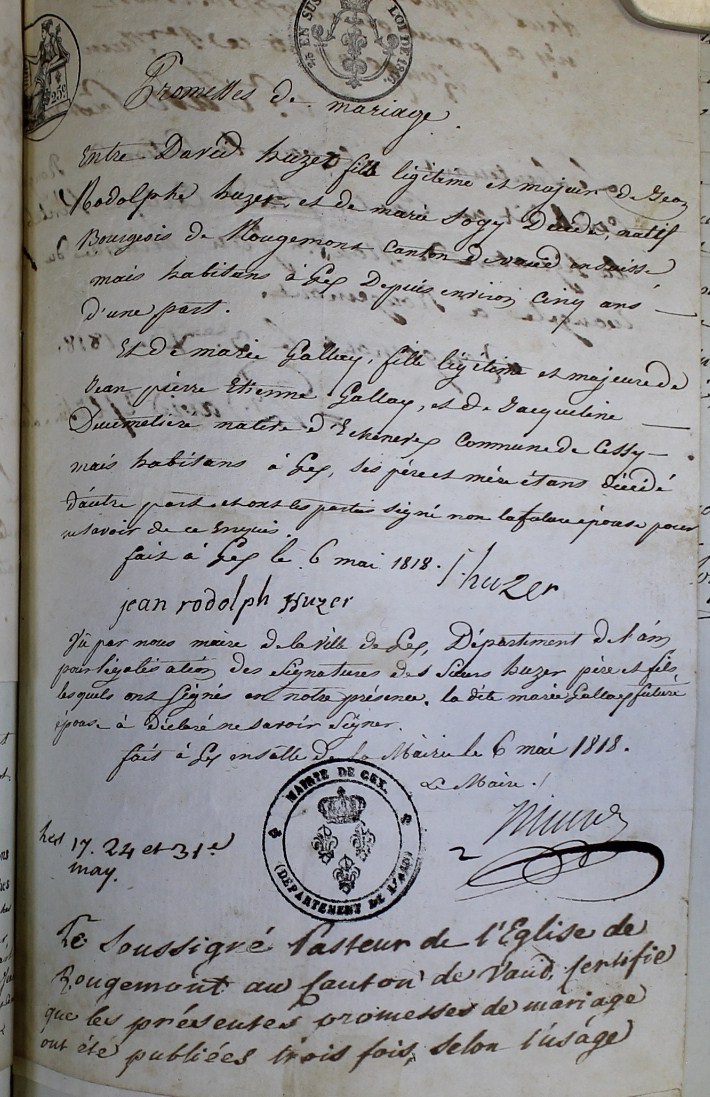 25 EN SUS
LOI DE 1816.
25c
Promesses de mariage
Entre David huzer fils légitime et majeur de Jean
Rodolphe huzer, et de marie Sogy Décédé, natif
Bourgeois de Rougemont canton de vaud en Suisse
mais habitans à Gex Depuis environ Cinq ans
D'une part.
Et De marie Gallay, fille légitime et majeure de
Jean pierre Etienne Gallay, et de Jacqueline
native d'Echenevex Commune de Cessy
mais habitans à Gex, Ses père et mère étans Décédé
D'autre part et ont les parties signé non la future épouse pour
ne savoir de ce Enquis.
fait à Gex le 6 mai 1818. huzer
jean rodolph Huzer
Vu par nous maire de la ville de Gex, Département de l'ain
pour légalisation des signatures des Sieurs huzer père et fils
lesquels ont Signés en notre présence. la dite marie Gallay future
épouse à Déclaré ne savoir Signer.
fait à Gex en salle de la Mairie le 6 mai 1818.
Le Maire.
MAIRIE DE GEX.
(DÉPARTEMENT DE L'AIN)
les 17. 24 et 31e
may.
Le Soussigné Pasteur de l'Eglise de
Rougemont au Canton de Vaud, Certifie
que les présentes promesses de mariage
ont été publiées trois fois, selon l'usage